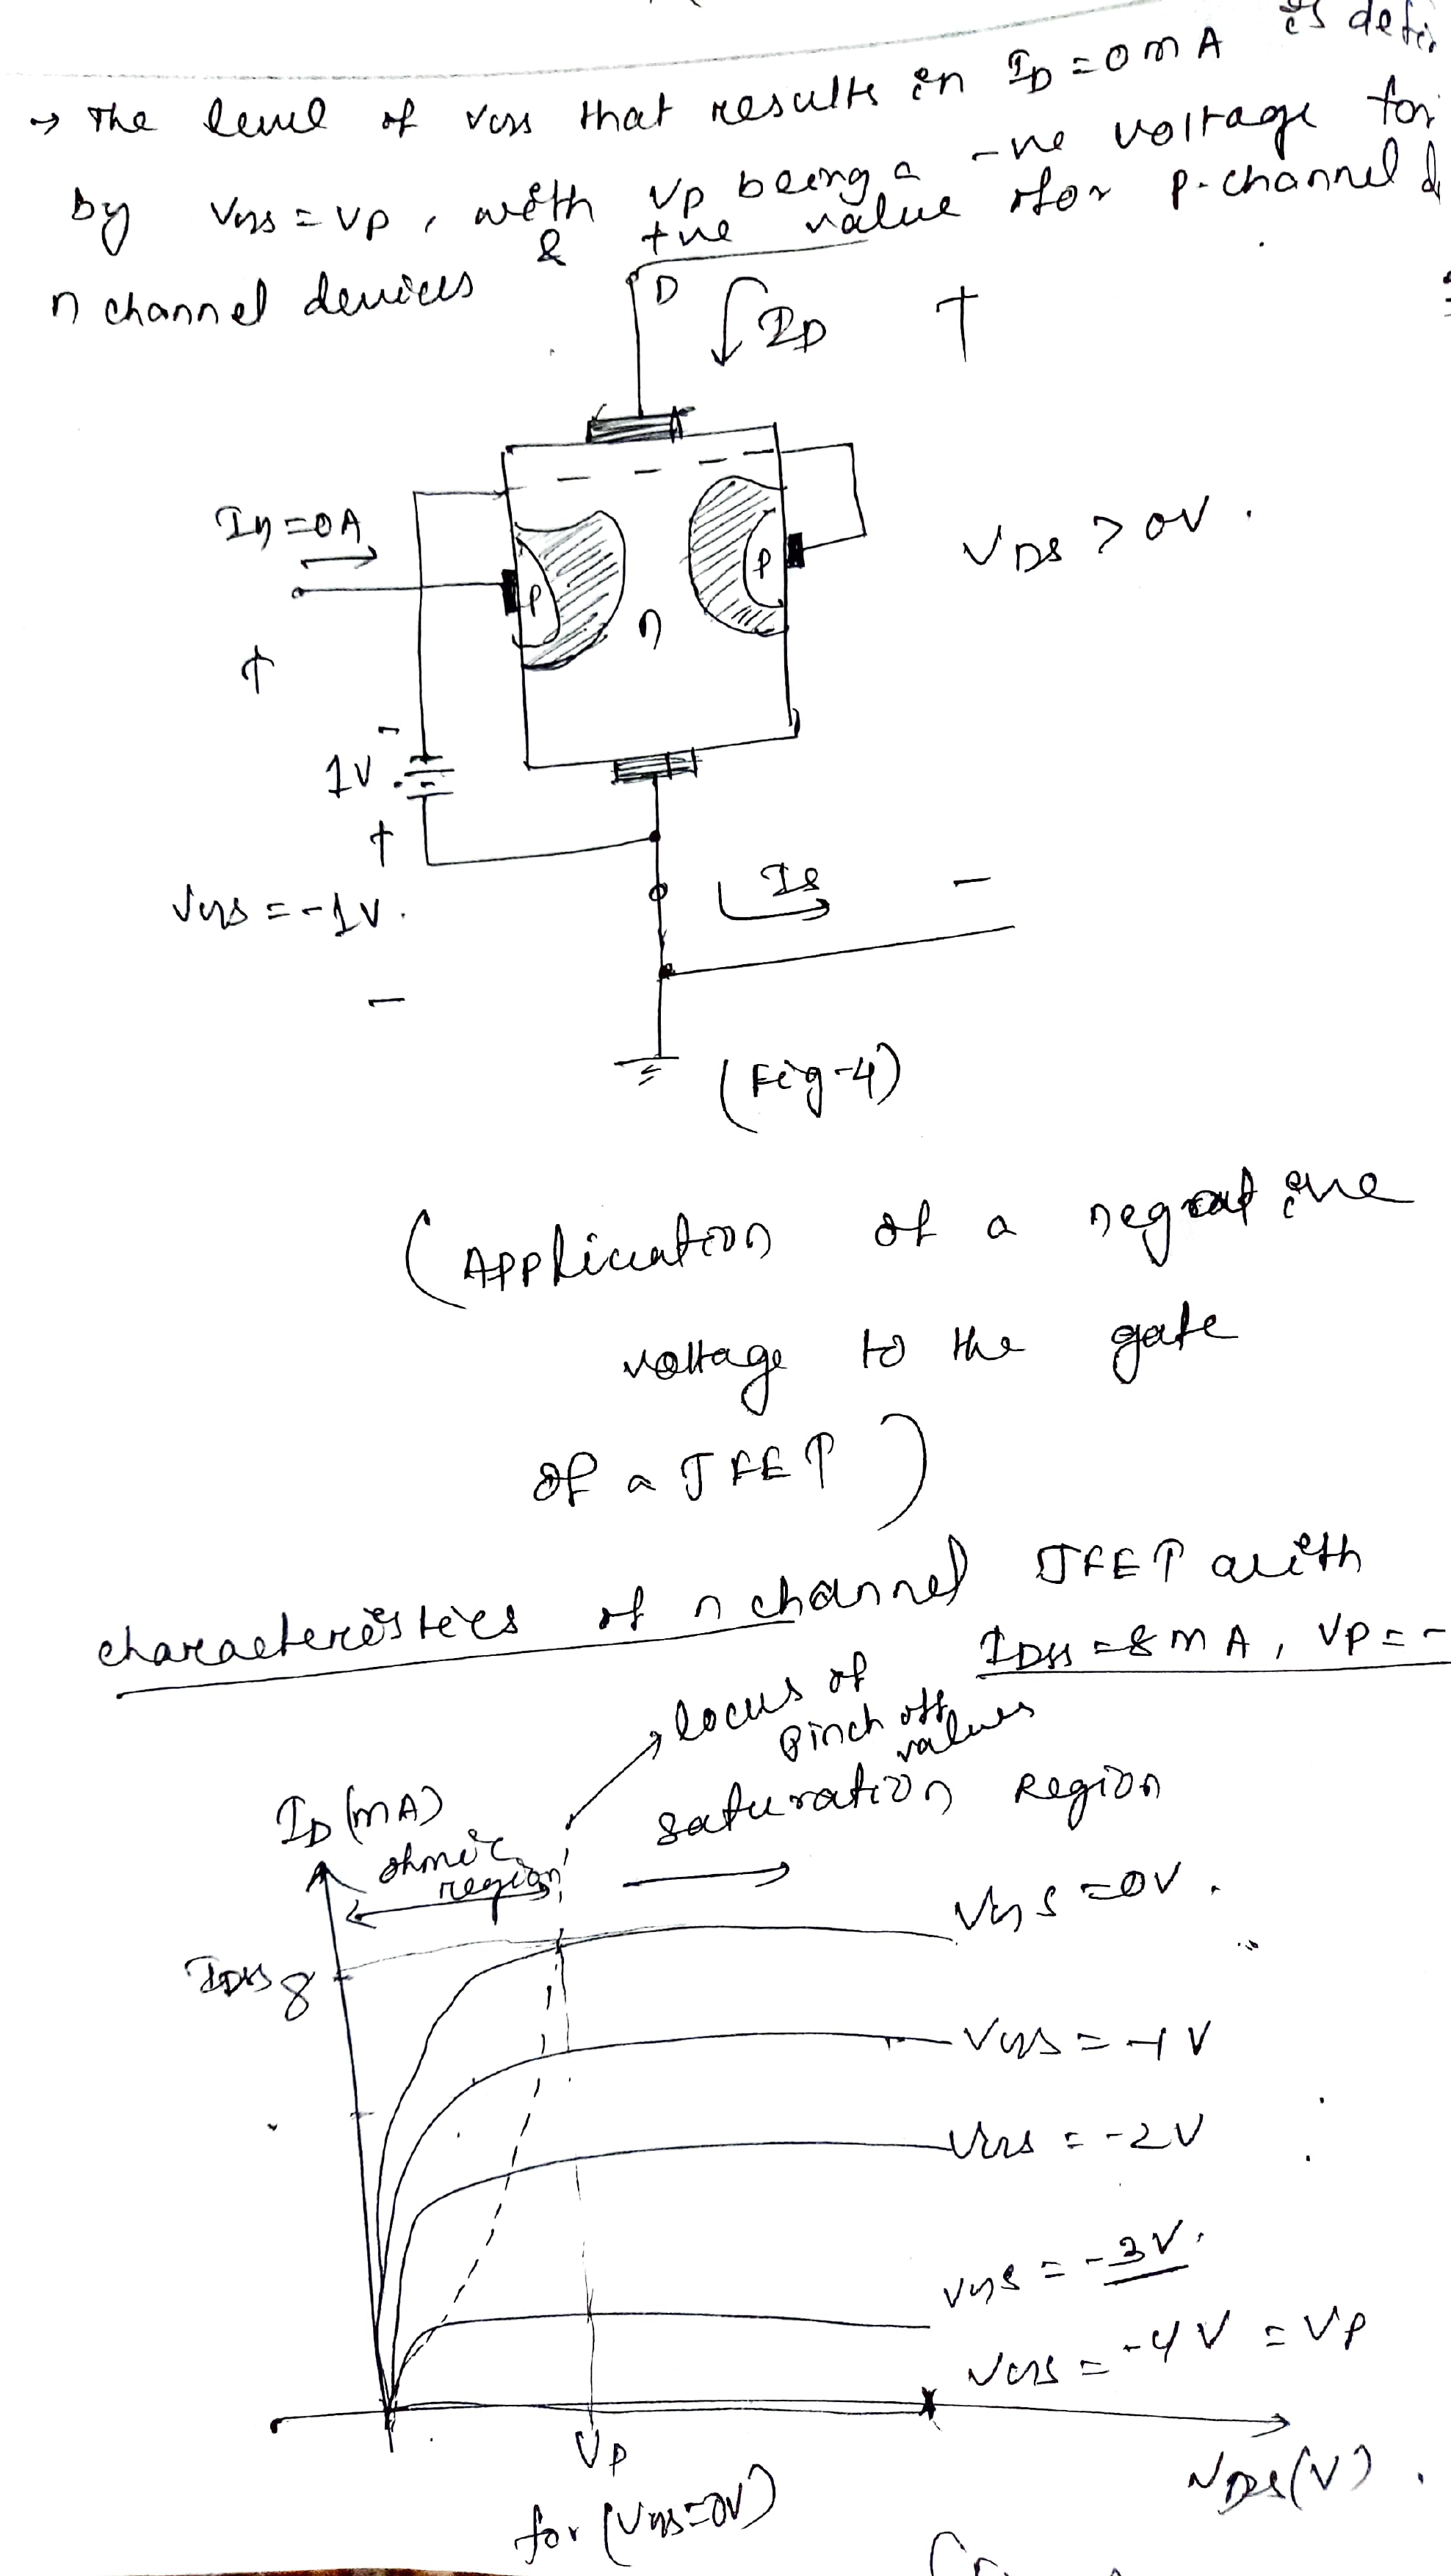 → The level of VGS that results in ID = 0 mA is defi
by VGS = VP, with VP being a -ve voltage for
n channel devices & +ve value for p-channel d
D
ID
+
IG = 0A
VDS > 0V.
P
P
n
+
-
1V
+
IS
-
VGS = -1V.
-
(Fig-4)
(Application of a negative
voltage to the gate
of a JFET)
characteristics of n channel JFET with
IDSS = 8 mA, VP = -
locus of
pinch off
values
ID (mA)
saturation Region
ohmic
region
VGS = 0V.
IDSS 8
VGS = -1V
VGS = -2V
VGS = -3V.
VGS = -4V = VP
VP
VDS (V).
for (VGS = 0V)